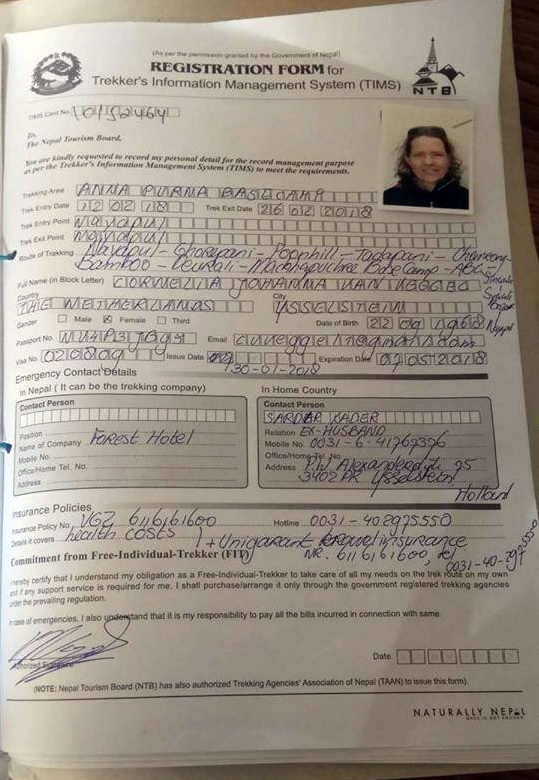 (As per the permission granted by the Government of Nepal)
REGISTRATION FORM for
Trekker's Information Management System (TIMS)
NTB
TIMS Card No. 0152464
To,
The Nepal Tourism Board,
You are kindly requested to record my personal detail for the record management purpose
as per the Trekker's Information Management System (TIMS) to meet the requirements.
Trekking Area ANNA PURNA BASECAMP
Trek Entry Date 12 02 18 Trek Exit Date 26 02 2018
Trek Entry Point Nayapul
Trek Exit Point Nayapul
Route of Trekking Nayapul - Ghorepani - Poonhill - Tadapani -
Bamboo - Deurali - Machhapuchre Base Camp - ABC
Full Name (in Block Letter) CORNELIA JOHANNA VAN
Country City
THE NETHERLANDS YSSELSTEIN
Gender Male Female Third Date of Birth 22 09 1968
Passport No. Email
Visa No. Issue Date Expiration Date
30-01-2018
Emergency Contact Details
In Nepal ( It can be the trekking company) In Home Country
Contact Person Contact Person
SARDAR KADER
Position Relation EX-HUSBAND
Name of Company Forest Hotel Mobile No. 0031-6-41767376
Mobile No. Office/Home Tel. No.
Office/Home Tel. No. Address 25
Address 3402 PK Ysselstein,
Holland
Insurance Policies
Insurance Policy No. VGZ 6116161600 Hotline 0031-408975550
Details it covers health costs + Unigarant travel insurance
NR. 6116161600, tel
Commitment from Free-Individual-Trekker (FIT) 0031-40-297
I hereby certify that I understand my obligation as a Free-Individual-Trekker to take care of all my needs on the trek route on my own
and if any support service is required for me, I shall purchase/arrange it only through the government registered trekking agencies
under the prevailing regulation.
In case of emergencies, I also understand that it is my responsibility to pay all the bills incurred in connection with same.
Authorized Signature
Date
(NOTE: Nepal Tourism Board (NTB) has also authorized Trekking Agencies' Association of Nepal (TAAN) to issue this form).
NATURALLY NEPAL
ONCE IS NOT ENOUGH